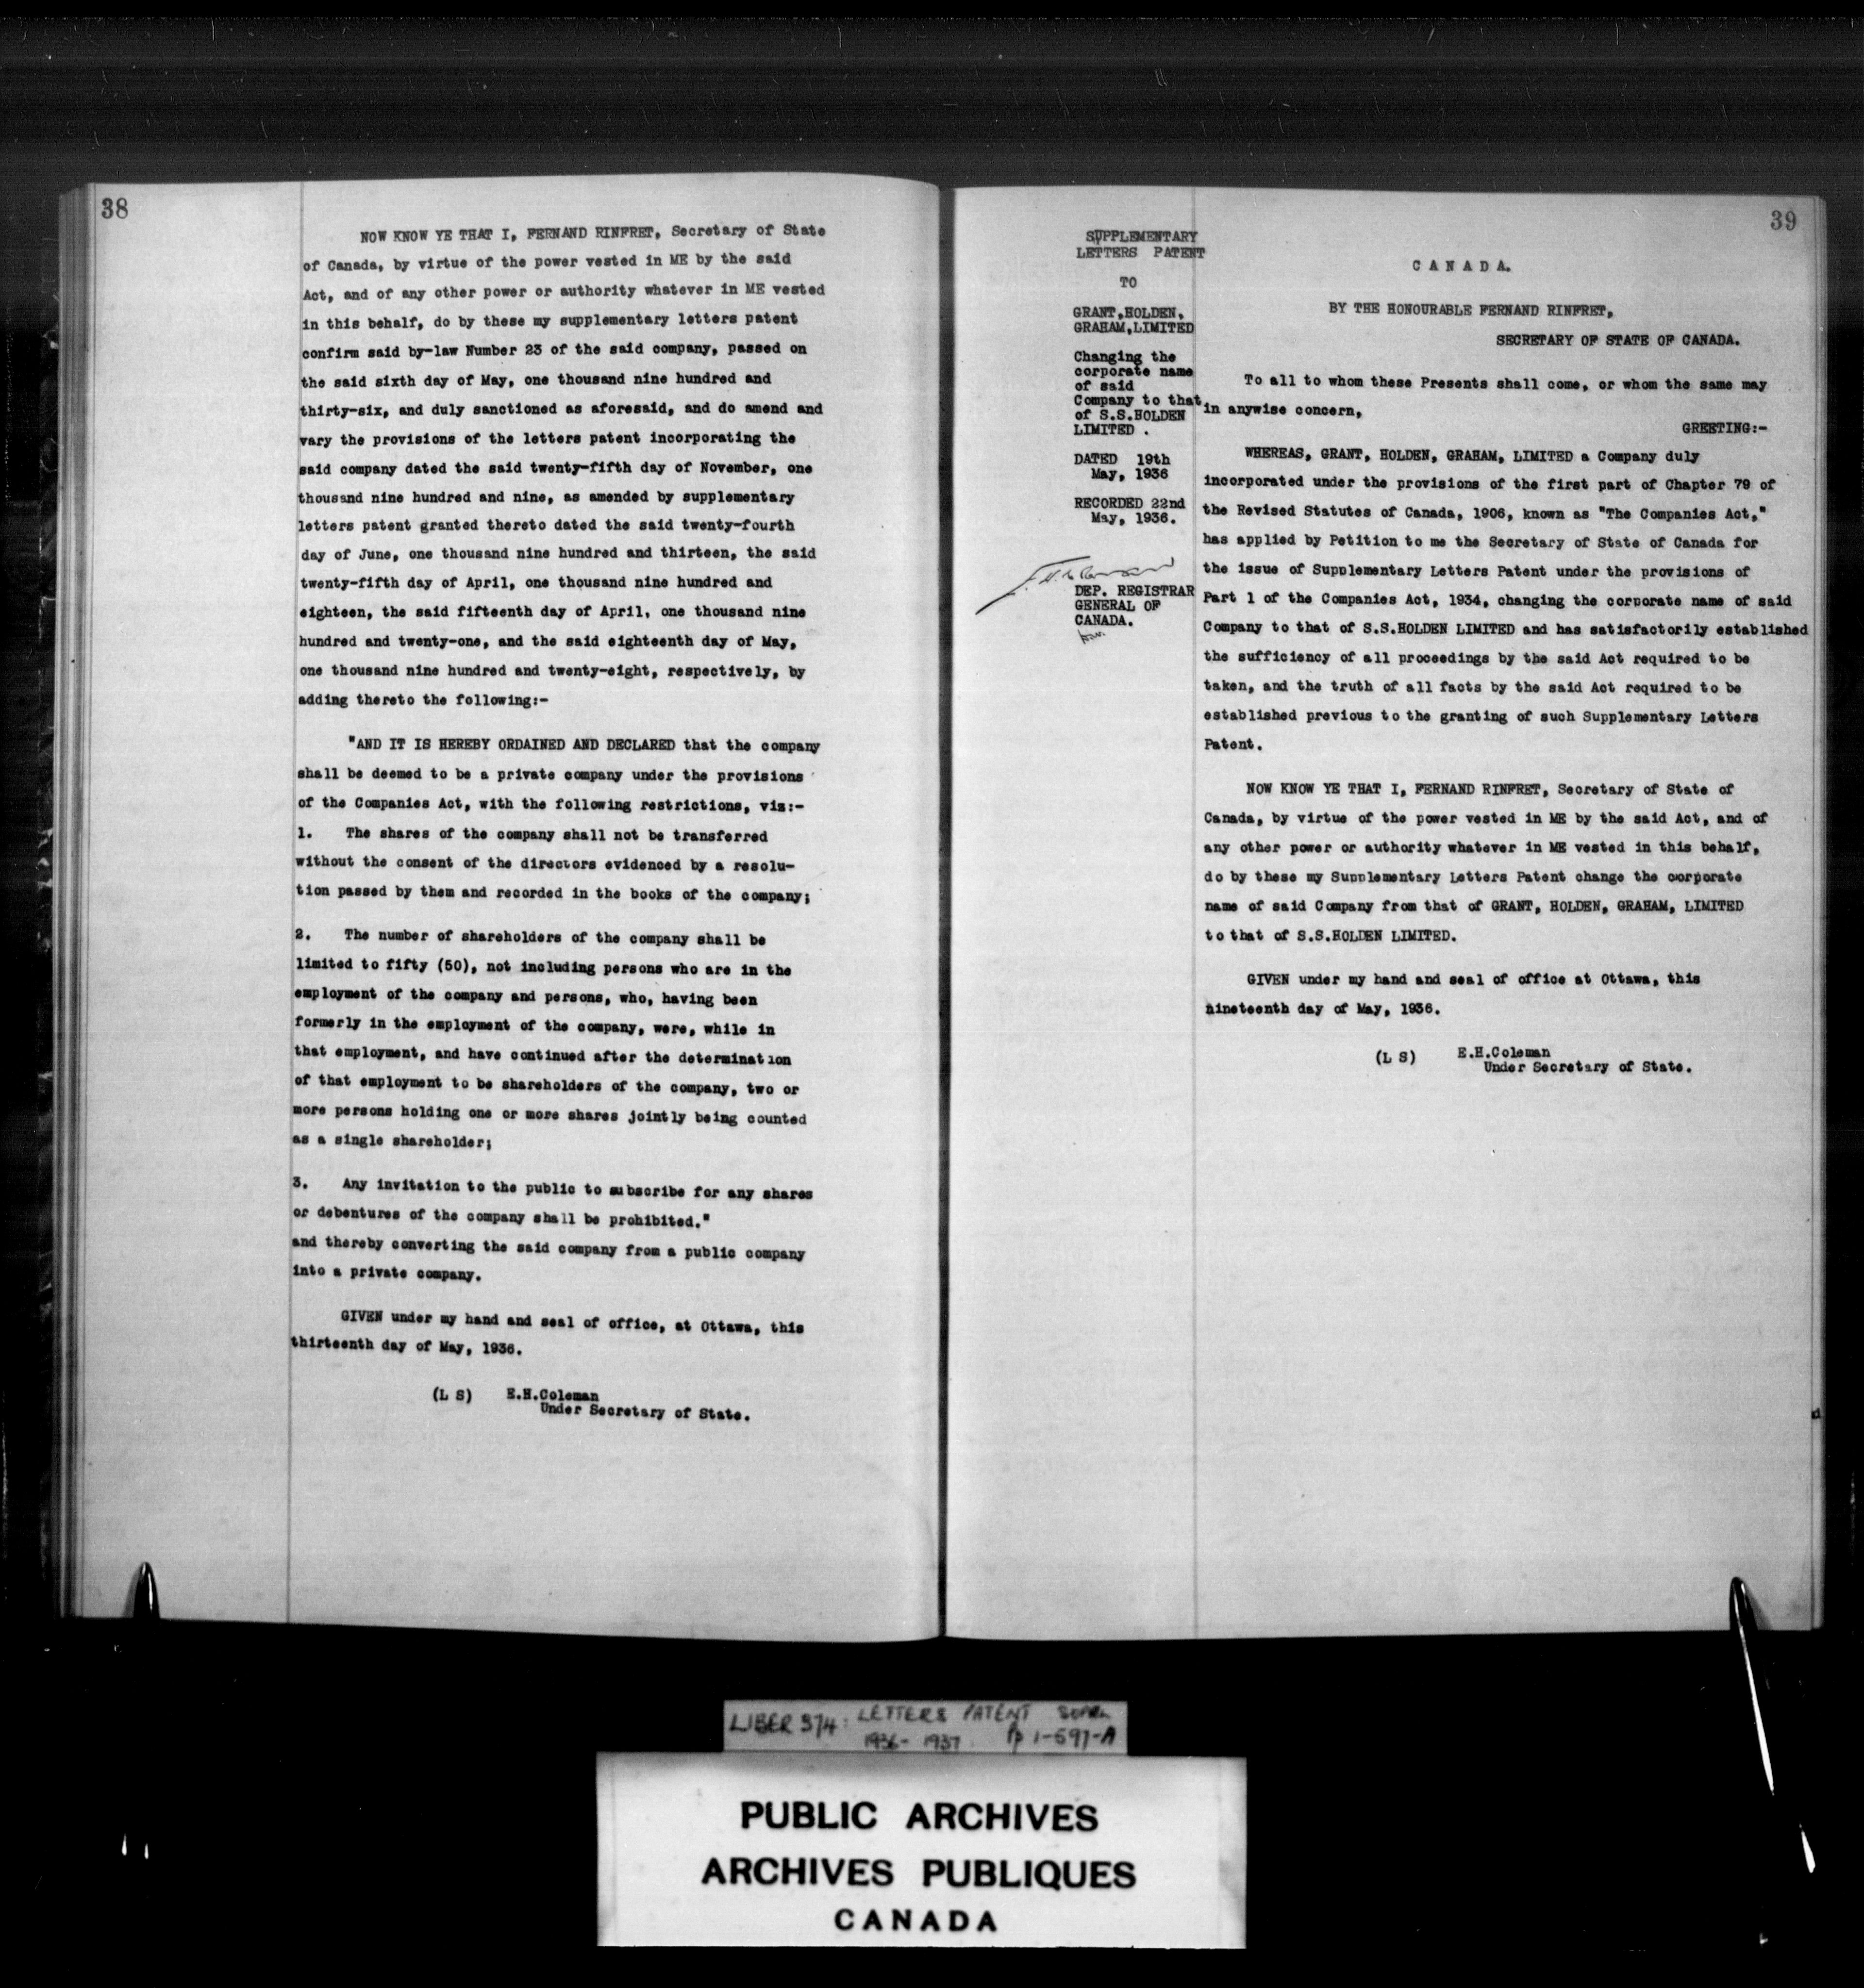 38
NOW KNOW YE THAT I, FERNAND RINFRET, Secretary of State
of Canada, by virtue of the power vested in ME by the said
Act, and of any other power or authority whatever in ME vested
in this behalf, do by these my supplementary letters patent
confirm said by-law Number 23 of the said company, passed on
the said sixth day of May, one thousand nine hundred and
thirty-six, and duly sanctioned as aforesaid, and do amend and
vary the provisions of the letters patent incorporating the
said company dated the said twenty-fifth day of November, one
thousand nine hundred and nine, as amended by supplementary
letters patent granted thereto dated the said twenty-fourth
day of June, one thousand nine hundred and thirteen, the said
twenty-fifth day of April, one thousand nine hundred and
eighteen, the said fifteenth day of April, one thousand nine
hundred and twenty-one, and the said eighteenth day of May,
one thousand nine hundred and twenty-eight, respectively, by
adding thereto the following:-
"AND IT IS HEREBY ORDAINED AND DECLARED that the company
shall be deemed to be a private company under the provisions
of the Companies Act, with the following restrictions, viz:-
1. The shares of the company shall not be transferred
without the consent of the directors evidenced by a resolu-
tion passed by them and recorded in the books of the company;
2. The number of shareholders of the company shall be
limited to fifty (50), not including persons who are in the
employment of the company and persons, who, having been
formerly in the employment of the company, were, while in
that employment, and have continued after the determination
of that employment to be shareholders of the company, two or
more persons holding one or more shares jointly being counted
as a single shareholder;
3. Any invitation to the public to subscribe for any shares
or debentures of the company shall be prohibited."
and thereby converting the said company from a public company
into a private company.
GIVEN under my hand and seal of office, at Ottawa, this
thirteenth day of May, 1936.
(L S) E.H.Coleman
Under Secretary of State.
39
SUPPLEMENTARY
LETTERS PATENT
TO
GRANT,HOLDEN,
GRAHAM,LIMITED
Changing the
corporate name
of said
Company to that
of S.S.HOLDEN
LIMITED .
DATED 19th
May, 1936
RECORDED 22nd
May, 1936.
DEP. REGISTRAR
GENERAL OF
CANADA.
C A N A D A.
BY THE HONOURABLE FERNAND RINFRET,
SECRETARY OF STATE OF CANADA.
To all to whom these Presents shall come, or whom the same may
in anywise concern,
GREETING:-
WHEREAS, GRANT, HOLDEN, GRAHAM, LIMITED a Company duly
incorporated under the provisions of the first part of Chapter 79 of
the Revised Statutes of Canada, 1906, known as "The Companies Act,"
has applied by Petition to me the Secretary of State of Canada for
the issue of Supplementary Letters Patent under the provisions of
Part 1 of the Companies Act, 1934, changing the corporate name of said
Company to that of S.S.HOLDEN LIMITED and has satisfactorily established
the sufficiency of all proceedings by the said Act required to be
taken, and the truth of all facts by the said Act required to be
established previous to the granting of such Supplementary Letters
Patent.
NOW KNOW YE THAT I, FERNAND RINFRET, Secretary of State of
Canada, by virtue of the power vested in ME by the said Act, and of
any other power or authority whatever in ME vested in this behalf,
do by these my Supplementary Letters Patent change the corporate
name of said Company from that of GRANT, HOLDEN, GRAHAM, LIMITED
to that of S.S.HOLDEN LIMITED.
GIVEN under my hand and seal of office at Ottawa, this
nineteenth day of May, 1936.
(L S) E.H.Coleman
Under Secretary of State.
LIBER 374: LETTERS PATENT SUPPL
1936- 1937 Pp 1-597-A
PUBLIC ARCHIVES
ARCHIVES PUBLIQUES
CANADA